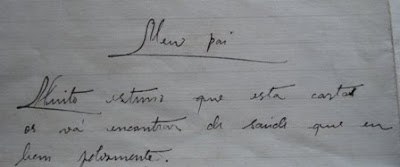 Meu pai
Muito estimo que esta carta
os vá encontrar de saúde que eu
bem felizmente.